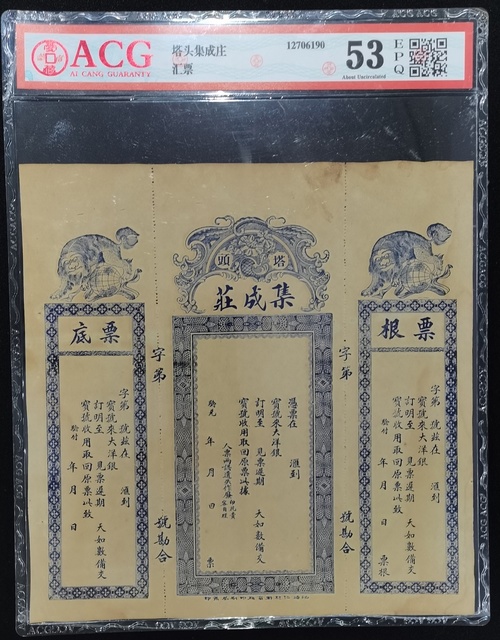 ACG
AI CANG GUARANTY
塔头集成庄
汇票
12706190
53
About Uncirculated
EPQ
頭塔
莊成集
根票
字第 號茲在 滙到
寶號來大洋銀
訂明至 見票遲期 天如數備交
寶號收用取回原票以致
驗付 年 月 日 票根
字第 號勘合
憑票在 滙到
寶號來大洋銀
訂明至 見票遲期 天如數備交
寶號收用取回原票以據
年 月 日 票
字第 號勘合
底票
字第 號茲在 滙到
寶號來大洋銀
訂明至 見票遲期 天如數備交
寶號收用取回原票以致
驗付 年 月 日